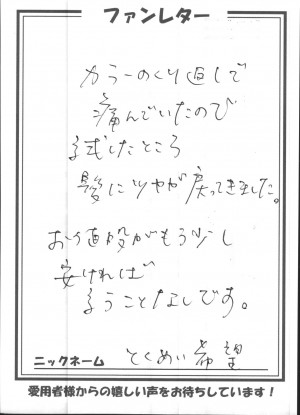 ファンレター
カラーのくり返しで
痛んでいたので
試したところ
髪にツヤが戻ってきました。
お値段がもう少し
安ければ
言うことなしです。
ニックネーム とくめい希望
愛用者様からの嬉しい声をお待ちしています！